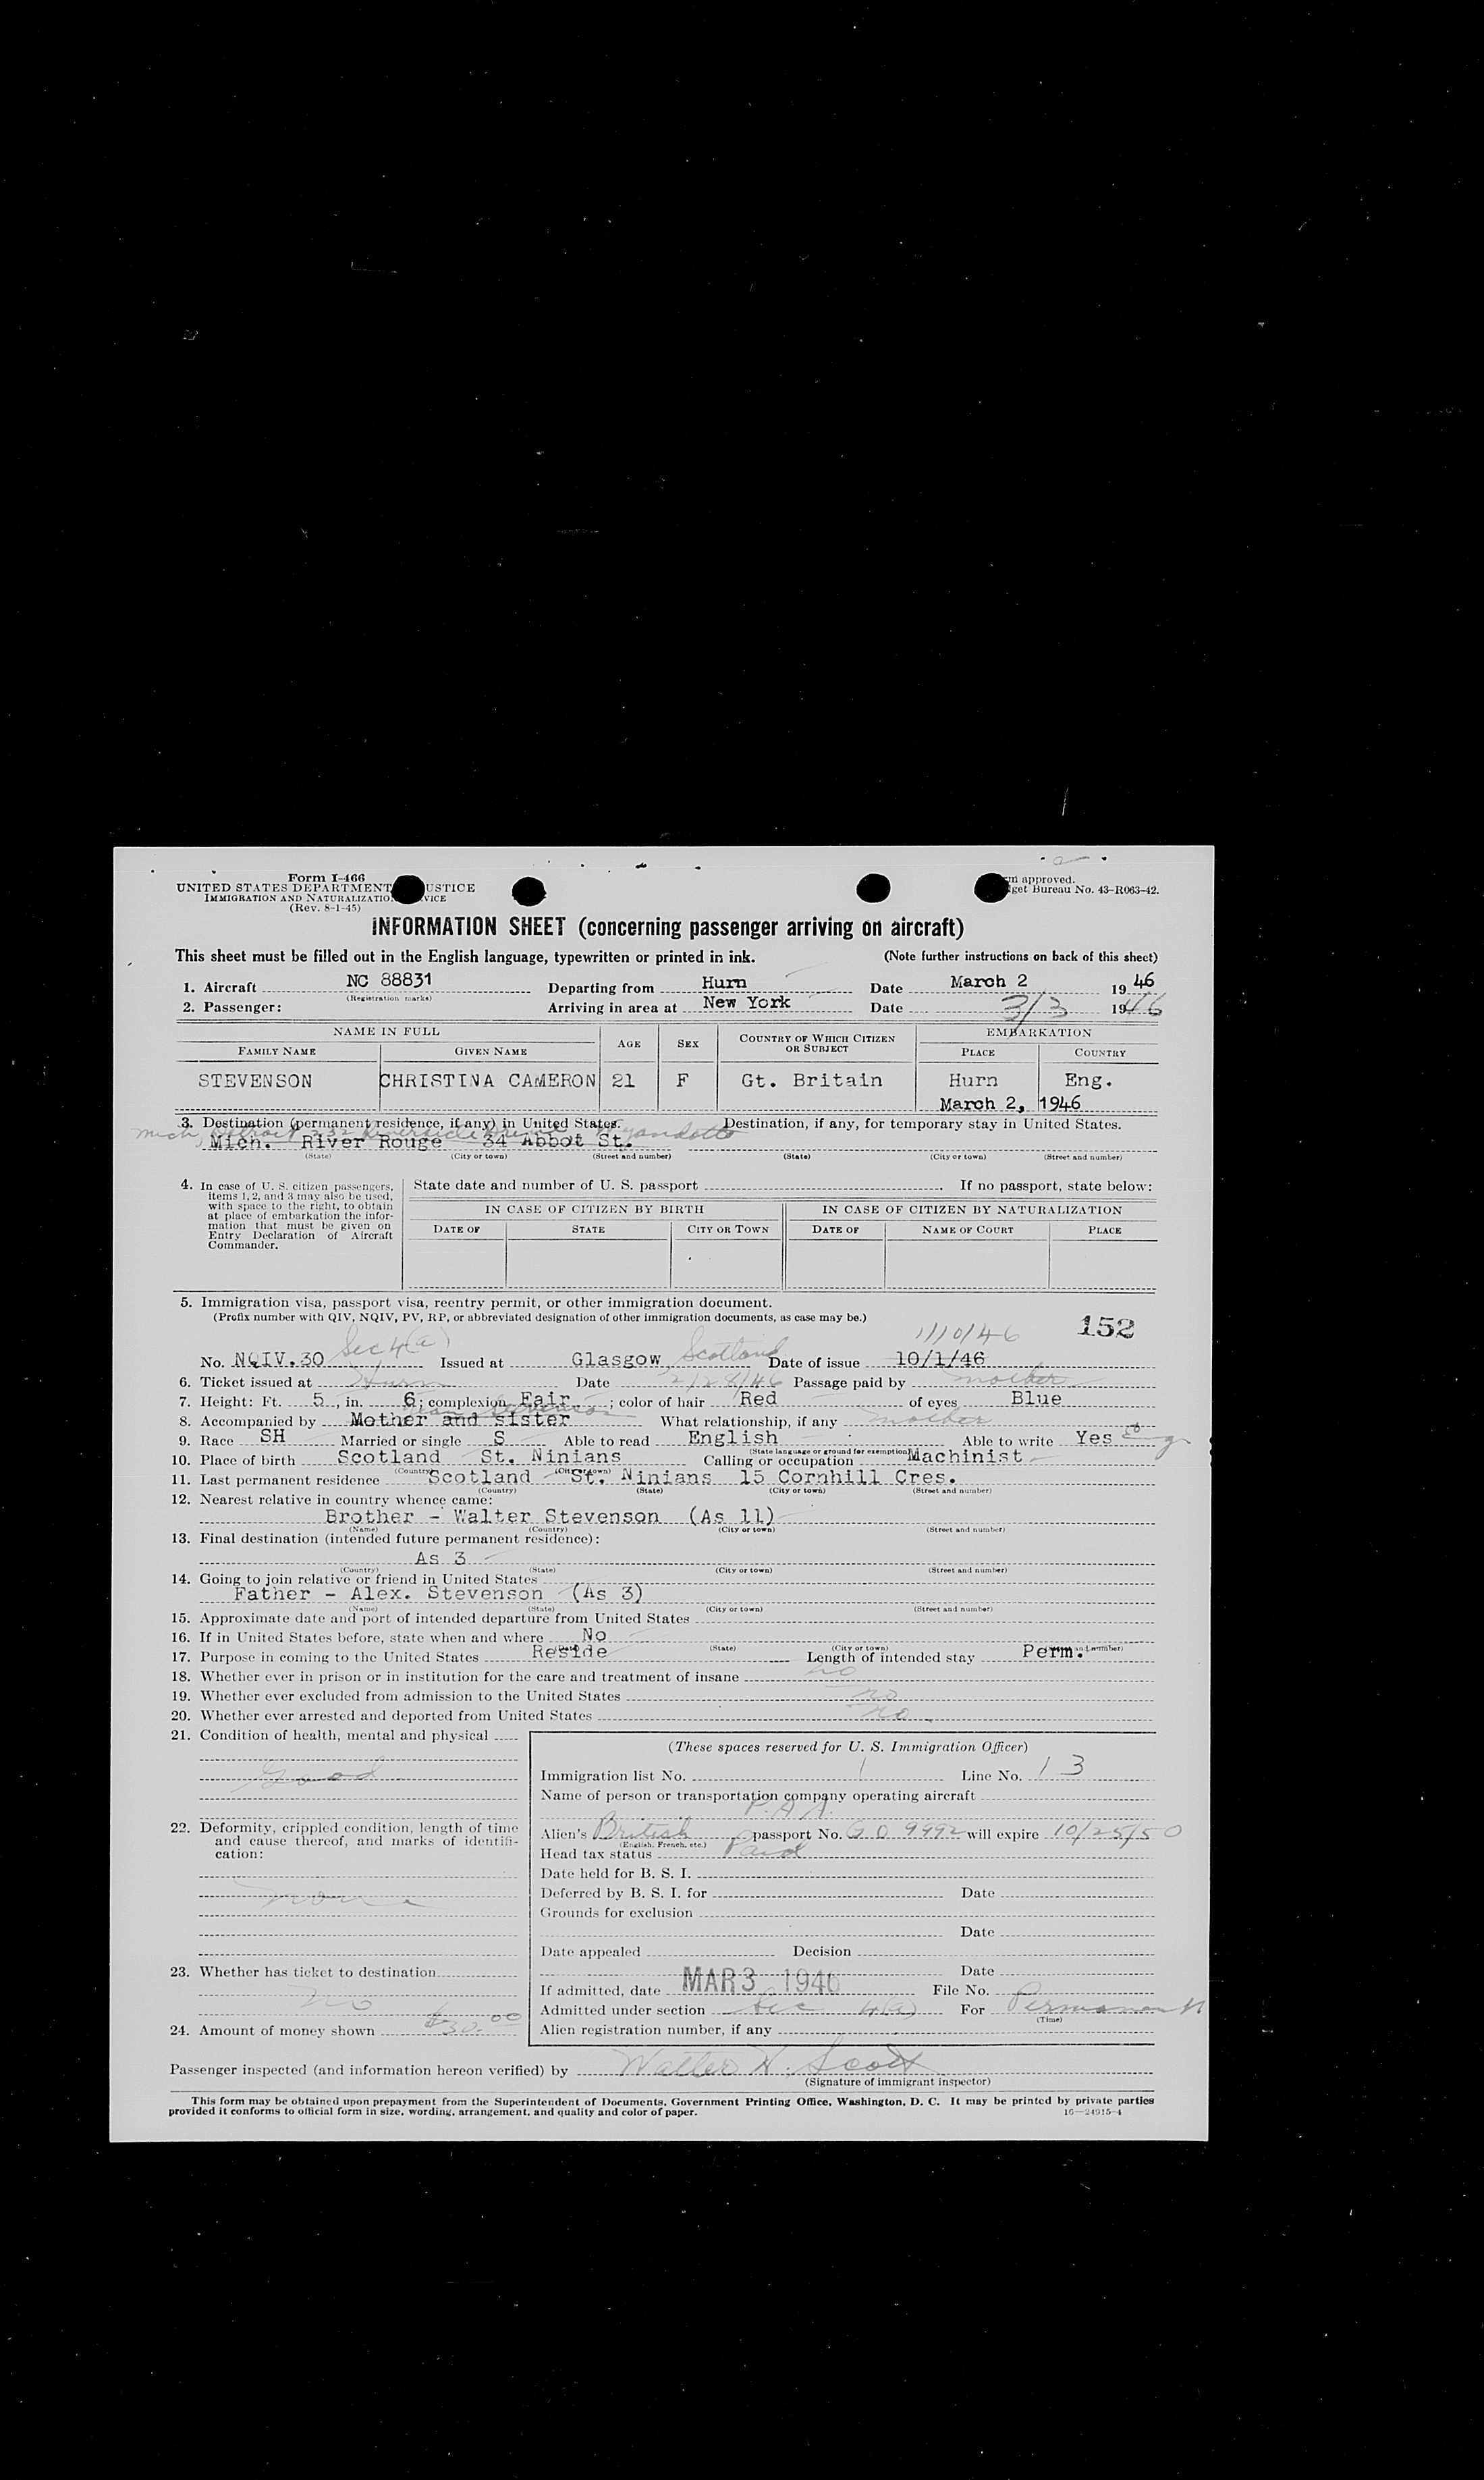 Form I-466
UNITED STATES DEPARTMENT USTICE
IMMIGRATION AND NATURALIZATIO VICE
(Rev. 8-1-45)
m approved.
get Bureau No. 43-R063-42.
INFORMATION SHEET (concerning passenger arriving on aircraft)
This sheet must be filled out in the English language, typewritten or printed in ink. (Note further instructions on back of this sheet)
1. Aircraft NC 88831 Departing from Hurn Date March 2 1946
(Registration marks)
2. Passenger: Arriving in area at New York Date 3/3 1946
NAME IN FULL AGE SEX COUNTRY OF WHICH CITIZEN OR SUBJECT EMBARKATION
FAMILY NAME GIVEN NAME PLACE COUNTRY
STEVENSON CHRISTINA CAMERON 21 F Gt. Britain Hurn Eng.
March 2, 1946
3. Destination (permanent residence, if any) in United States. Destination, if any, for temporary stay in United States.
Mich, Detroit 232 Riverside Wyandotte
Mich. River Rouge 34 Abbot St.
(State) (City or town) (Street and number) (State) (City or town) (Street and number)
4. In case of U. S. citizen passengers, items 1, 2, and 3 may also be used, with space to the right, to obtain at place of embarkation the information that must be given on Entry Declaration of Aircraft Commander.
State date and number of U. S. passport If no passport, state below:
IN CASE OF CITIZEN BY BIRTH IN CASE OF CITIZEN BY NATURALIZATION
DATE OF STATE CITY OR TOWN DATE OF NAME OF COURT PLACE
5. Immigration visa, passport visa, reentry permit, or other immigration document.
(Prefix number with QIV, NQIV, PV, RP, or abbreviated designation of other immigration documents, as case may be.)
152
Sec 4(a) 1/10/46
No. NQIV.30 Issued at Glasgow, Scotland Date of issue 10/1/46
6. Ticket issued at Hurn Date 2/28/46 Passage paid by mother
7. Height: Ft. 5, in. 6; complexion Fair; color of hair Red of eyes Blue
8. Accompanied by Mother and sister What relationship, if any mother
9. Race SH Married or single S Able to read English Able to write Yes Eng
(State language or ground for exemption)
10. Place of birth Scotland St. Ninians Calling or occupation Machinist
(Country) (City or town)
11. Last permanent residence Scotland St. Ninians 15 Cornhill Cres.
(Country) (State) (City or town) (Street and number)
12. Nearest relative in country whence came:
Brother - Walter Stevenson (As 11)
(Name) (Country) (City or town) (Street and number)
13. Final destination (intended future permanent residence):
As 3
(Country) (State) (City or town) (Street and number)
14. Going to join relative or friend in United States
Father - Alex. Stevenson (As 3)
(Name) (State) (City or town) (Street and number)
15. Approximate date and port of intended departure from United States
16. If in United States before, state when and where No
(Date) (State) (City or town) (Street and number)
17. Purpose in coming to the United States Reside Length of intended stay Perm.
18. Whether ever in prison or in institution for the care and treatment of insane no
19. Whether ever excluded from admission to the United States no
20. Whether ever arrested and deported from United States no
21. Condition of health, mental and physical
Good
22. Deformity, crippled condition, length of time and cause thereof, and marks of identification:
none
23. Whether has ticket to destination
no
24. Amount of money shown $30.00
(These spaces reserved for U. S. Immigration Officer)
Immigration list No. 1 Line No. 13
Name of person or transportation company operating aircraft
P.A.A.
Alien's British passport No. GO 9992 will expire 10/25/50
(English, French, etc.)
Head tax status Paid
Date held for B. S. I.
Deferred by B. S. I. for Date
Grounds for exclusion
Date
Date appealed Decision
Date
If admitted, date MAR 3 1946 File No.
Admitted under section Sec 4(a) For Permanent
(Time)
Alien registration number, if any
Passenger inspected (and information hereon verified) by Walter H. Scott
(Signature of immigrant inspector)
This form may be obtained upon prepayment from the Superintendent of Documents, Government Printing Office, Washington, D. C. It may be printed by private parties
provided it conforms to official form in size, wording, arrangement, and quality and color of paper. 16—24915-4